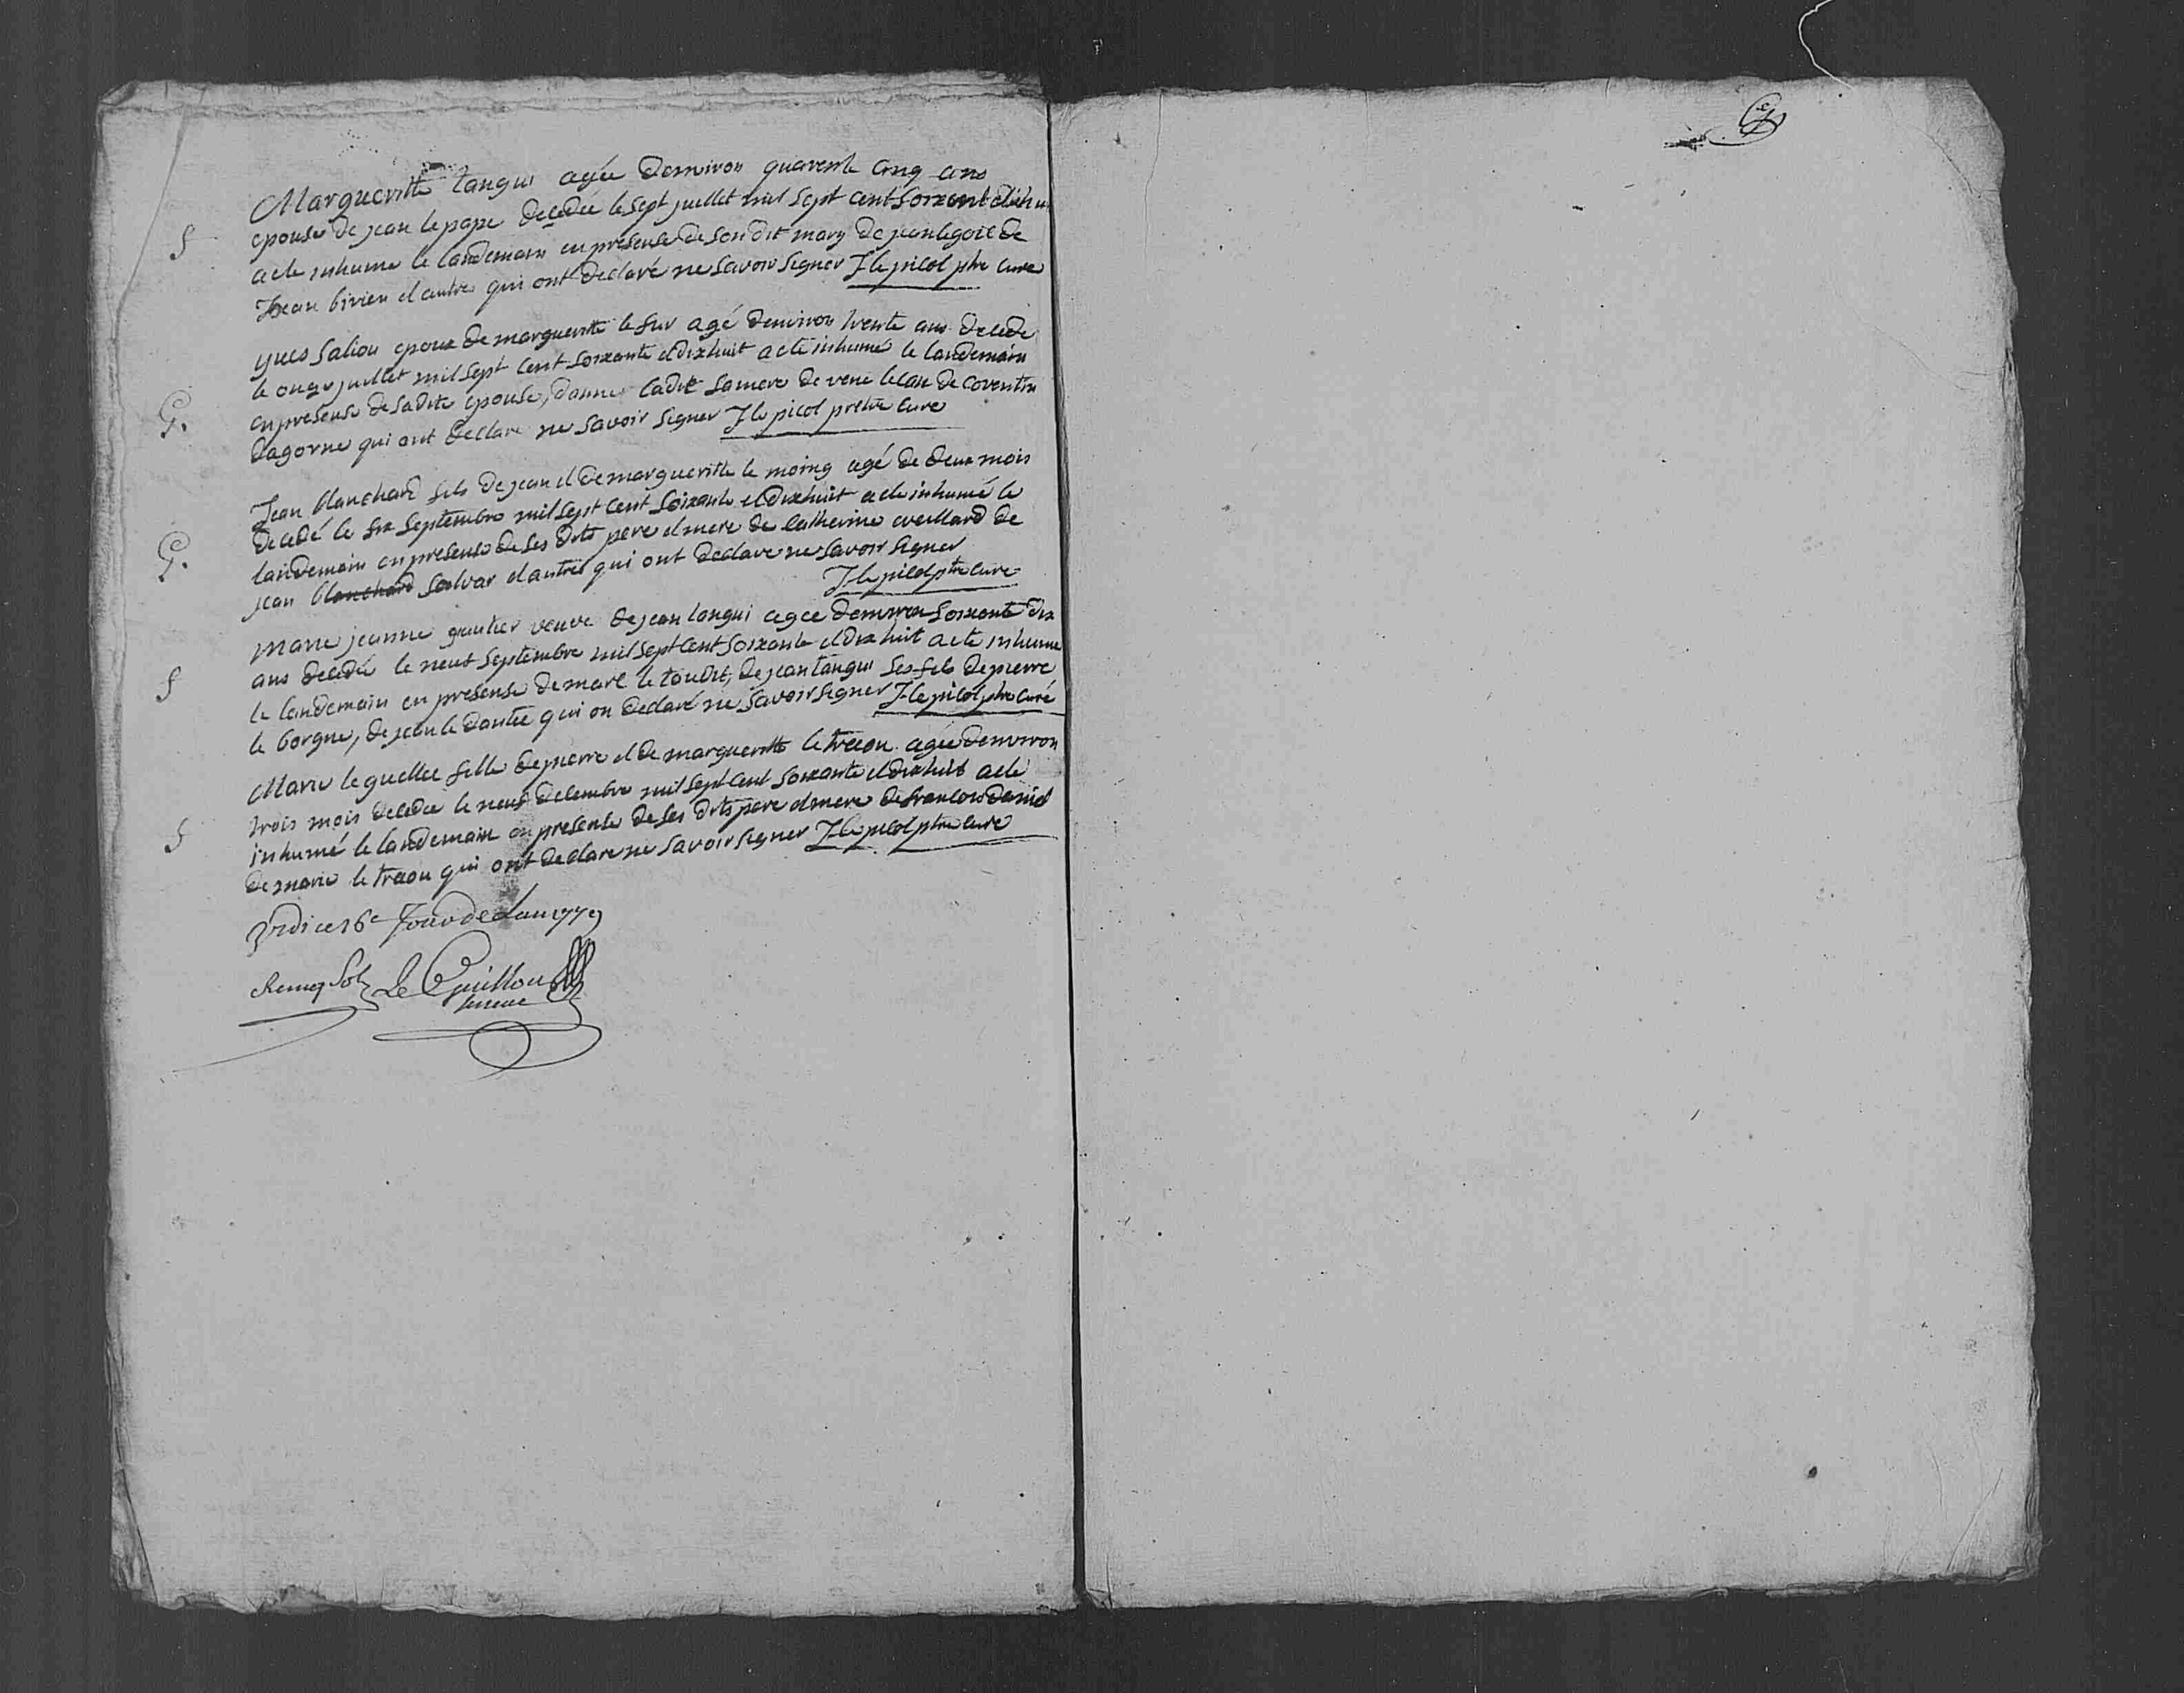 Margueritte tangui agée denviron quarente cinq ans
epouse de jean le pape decedée le sept juillet mil sept cent soixent et dix
a ete inhume le landemain en presense de son dit mary de jean le goic de
jean birien et autres qui ont declaré ne savoir signer J le picol ptre curé
S
yves saliou epoux de margueritte le fur agé denviron trente ans decede
le onze juillet mil sept cent soixante et dix huit a ete inhumé le landemain
en presense de sa dite epouse, danne cadic sa mere de rene le can de corentin
dagorne qui ont declare ne savoir signer J le picol pretre cure
G.
Jean blanchard fils de jean et de margueritte le moing agé de deux mois
decedé le six septembre mil sept cent soixante et dix huit a ete inhumé le
landemain en presense de ses dits pere et mere de catherine de
jean blanchard salvar et autres qui ont declare ne savoir signer
J le picol ptre cure
G.
marie jeanne gautier veuve de jean tangui agee denviron soixente dix
ans decedée le neuf septembre mil sept cent soixante et dix huit a ete inhume
le landemain en presense de marc le toudic, de jean tangui ses fils de pierre
le borgne, de jean le dantec qui on declaré ne savoir signer J le picol ptre curé
S
Marie le guellec fille de pierre et de margueritte le traon agée denviron
trois mois decedee le neuf decembre mil sept cent soixante et dix huit a ete
inhumé le landemain en presense de ses dits pere et mere de francois daniel
de marie le traon qui ont declare ne savoir signer J le picol ptre cure
S
ce 16e 1779
Le Guillou